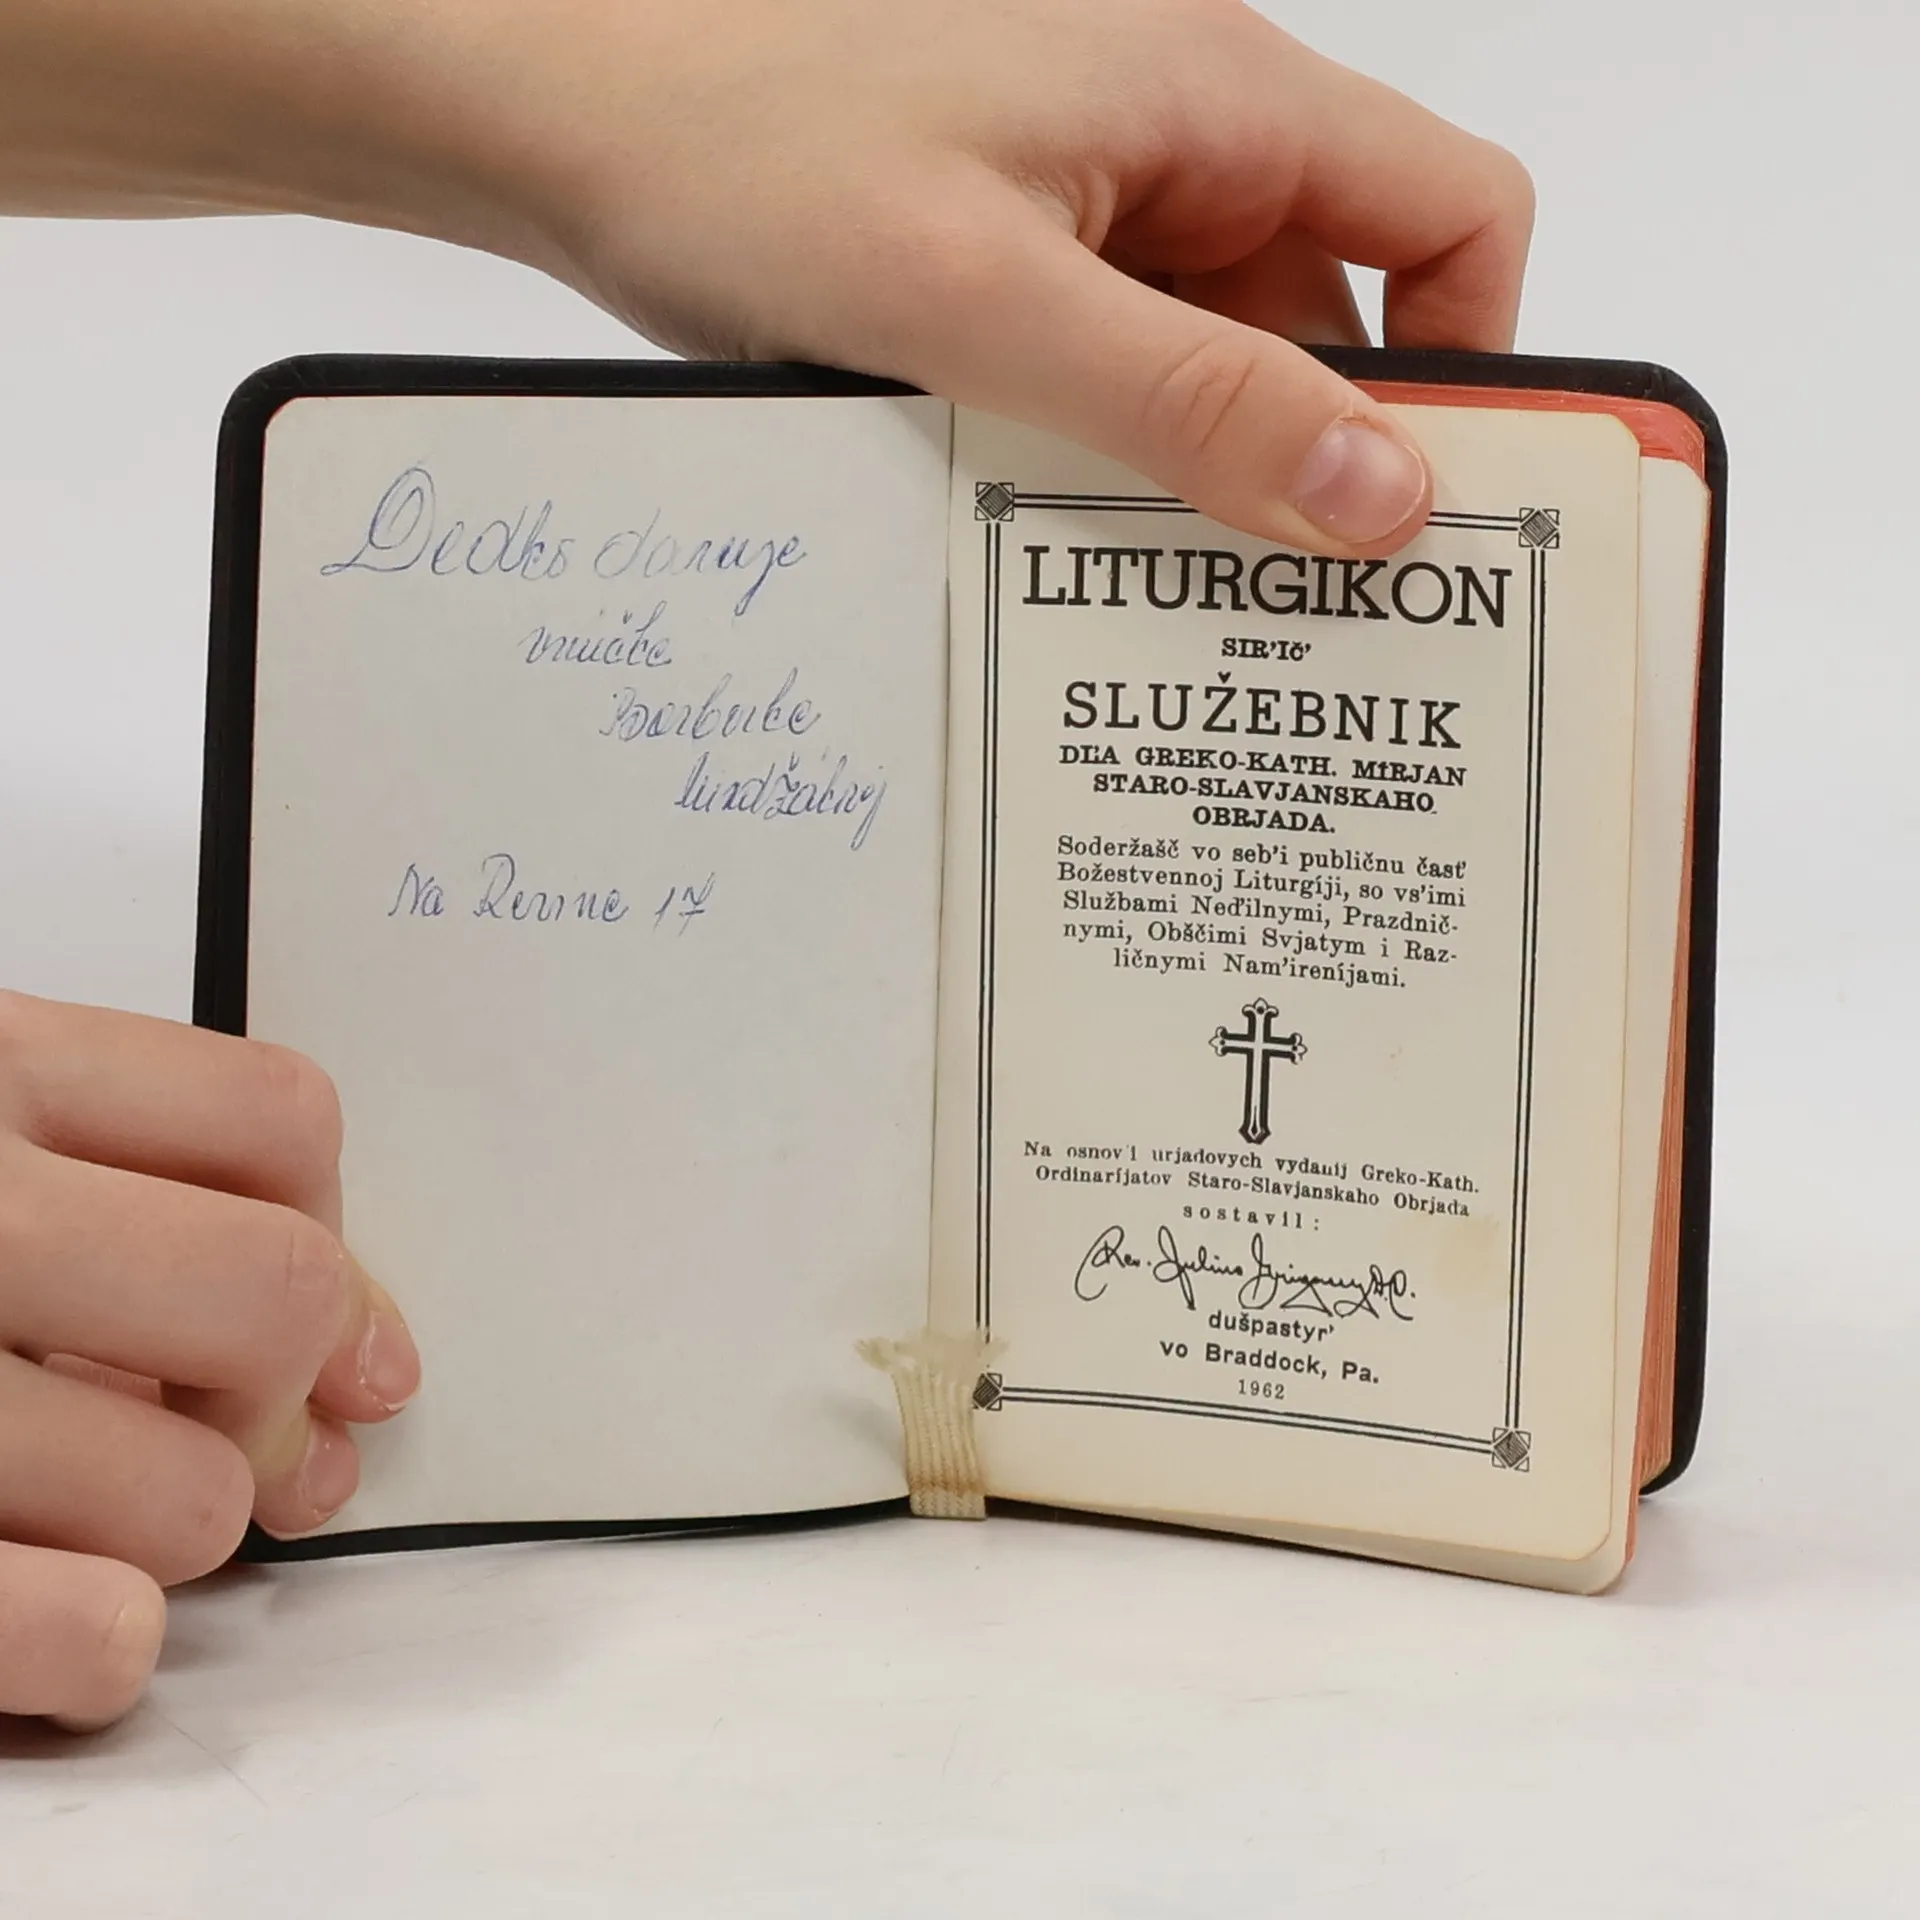 Dedko daruje
vnučke
Barbuke
Na Revine 17
LITURGIKON
SIR'IČ'
SLUŽEBNIK
DĽA GREKO-KATH. MÍRJAN
STARO-SLAVJANSKAHO
OBRJADA.
Soderžašč vo seb'i publičnu časť
Božestvennoj Liturgíji, so vs'imi
Službami Neďilnymi, Prazdnič-
nymi, Obščimi Svjatym i Raz-
ličnymi Nam'ireníjami.
Na osnov'i urjadovych vydanij Greko-Kath.
Ordinaríjatov Staro-Slavjanskaho Obrjada
sostavil:
Rev. Julius Grigassy D.D.
dušpastyr'
vo Braddock, Pa.
1962